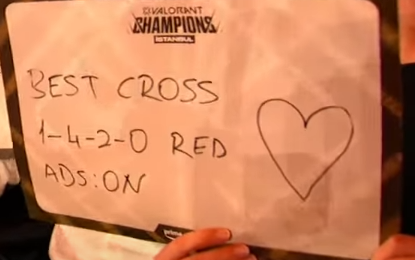 VALORANT
CHAMPIONS
ISTANBUL
BEST CROSS
1-4-2-0 RED
ADS:ON
prime